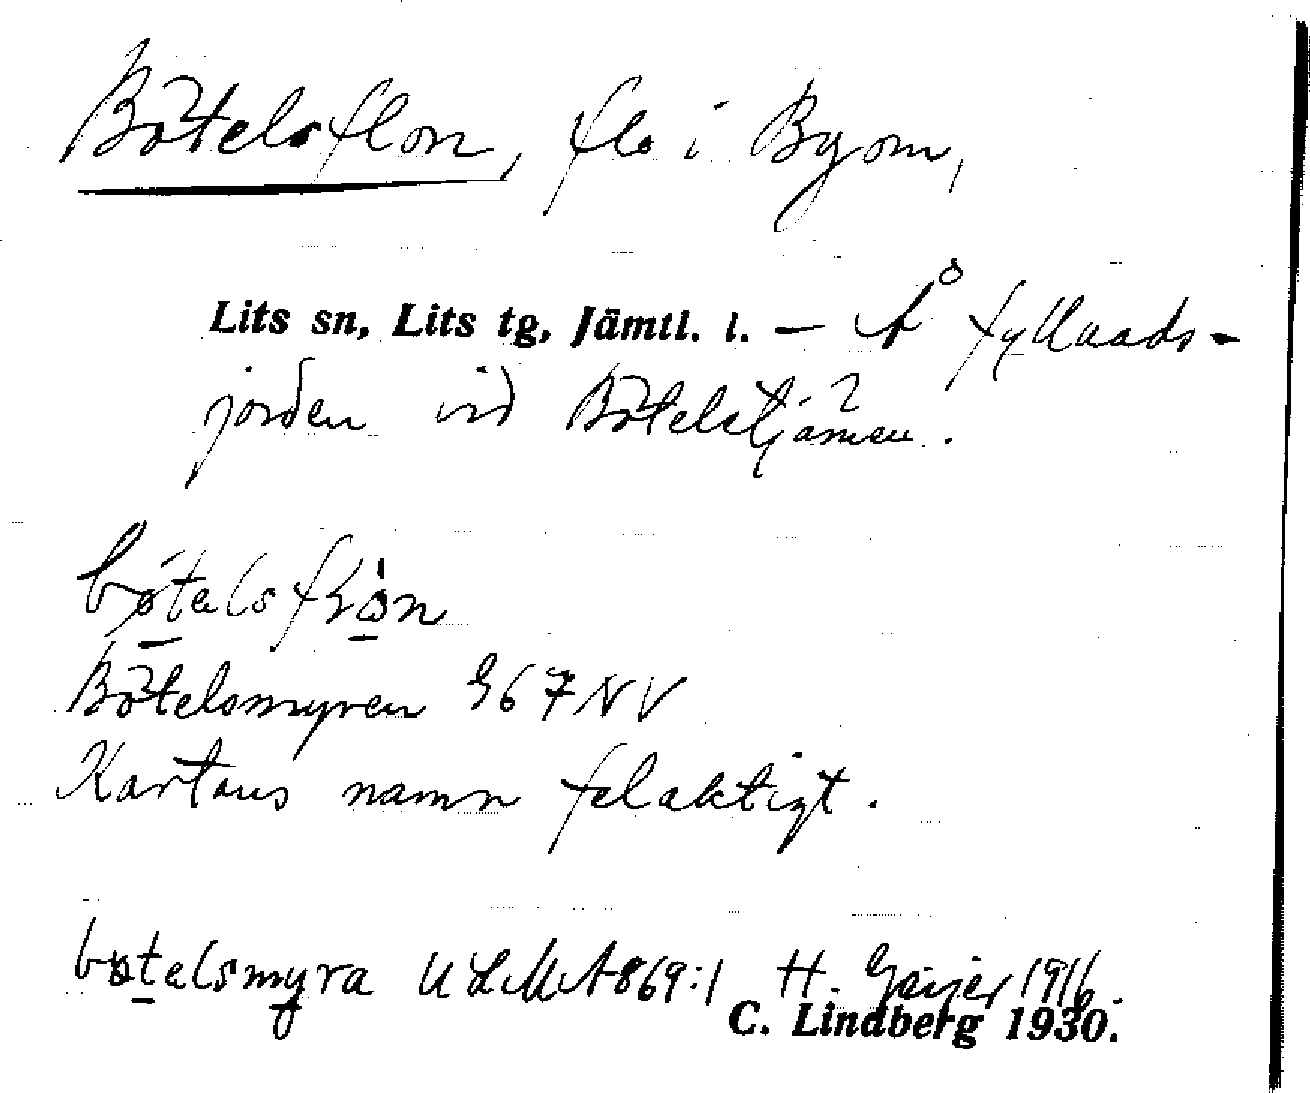 Bötelsflon, flo i Byom,
Lits sn, Lits tg, Jämtl. l. — Å Fyllaads-
jorden vid Bötelstjärnen.
bøtelsflo̱n
Bötelsmyren G67NV
Kartans namn felaktigt.
bøtelsmyra ULMA869:1 H. Geijer 1916.
C. Lindberg 1930.